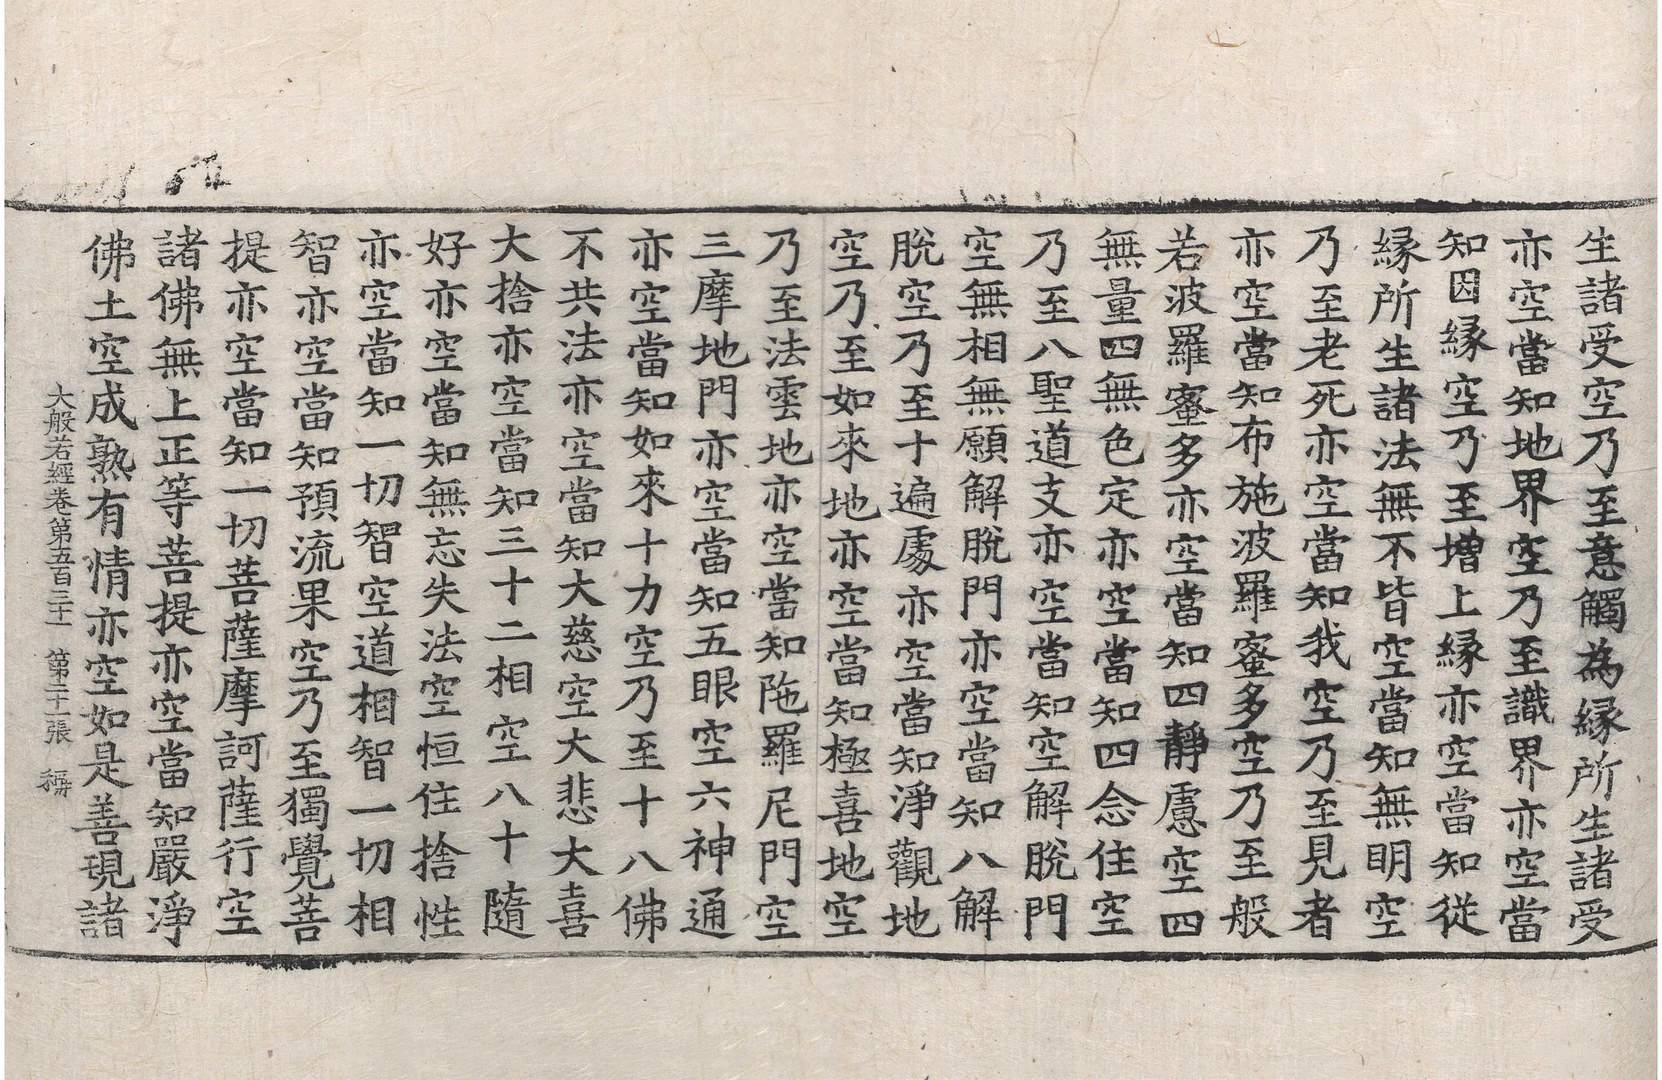 生諸受空乃至意觸為緣所生諸受
亦空當知地界空乃至識界亦空當
知因緣空乃至增上緣亦空當知從
緣所生諸法無不皆空當知無明空
乃至老死亦空當知我空乃至見者
亦空當知布施波羅蜜多空乃至般
若波羅蜜多亦空當知四靜慮空四
無量四無色定亦空當知四念住空
乃至八聖道支亦空當知空解脫門
空無相無願解脫門亦空當知八解
脫空乃至十遍處亦空當知淨觀地
空乃至如來地亦空當知極喜地空
乃至法雲地亦空當知陁羅尼門空
三摩地門亦空當知五眼空六神通
亦空當知如來十力空乃至十八佛
不共法亦空當知大慈空大悲大喜
大捨亦空當知三十二相空八十隨
好亦空當知無忘失法空恒住捨性
亦空當知一切智空道相智一切相
智亦空當知預流果空乃至獨覺菩
提亦空當知一切菩薩摩訶薩行空
諸佛無上正等菩提亦空當知嚴淨
佛土空成熟有情亦空如是善現諸
大般若經卷第五百三十一 第二十一張 稱